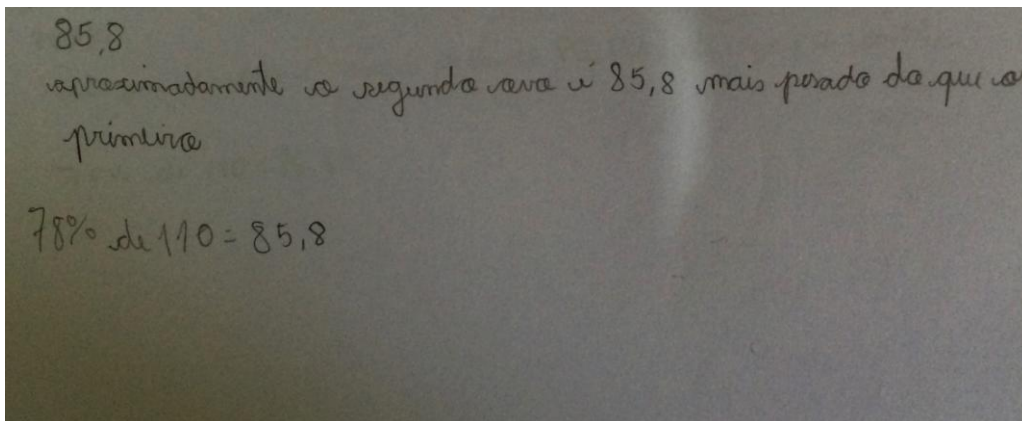 85,8
aproximadamente o segundo ovo é 85,8 mais pesado do que o
primeiro
78% de 110 = 85,8